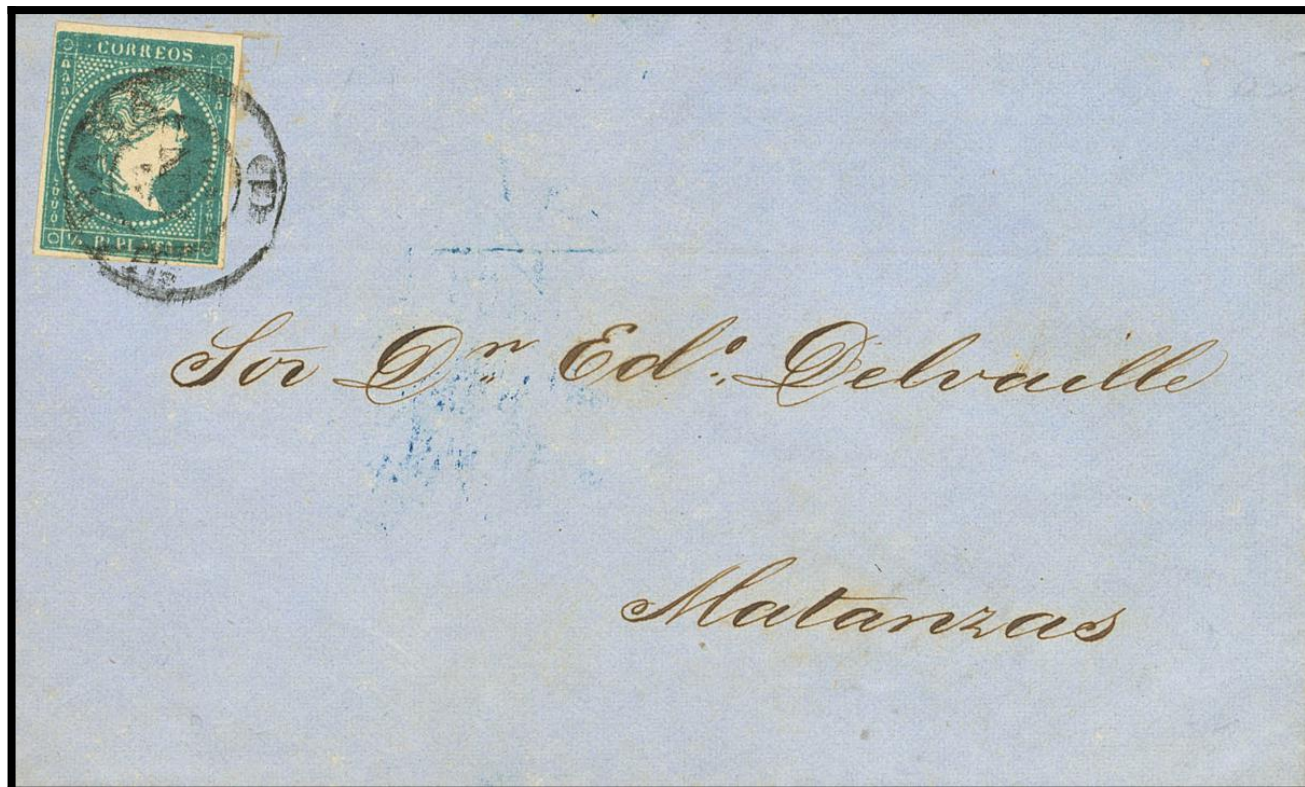 CORREOS
Sor Dn Edo. Delvaille
Matanzas